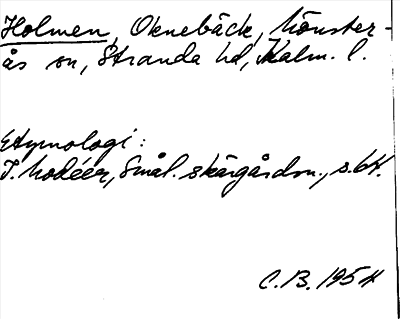 Holmen, Oknebäck, Mönster-
ås sn, Stranda hd, Kalm. l.
Etymologi:
I. Modéer, Smål. skärgårdsn., s. 64.
C.B. 1954